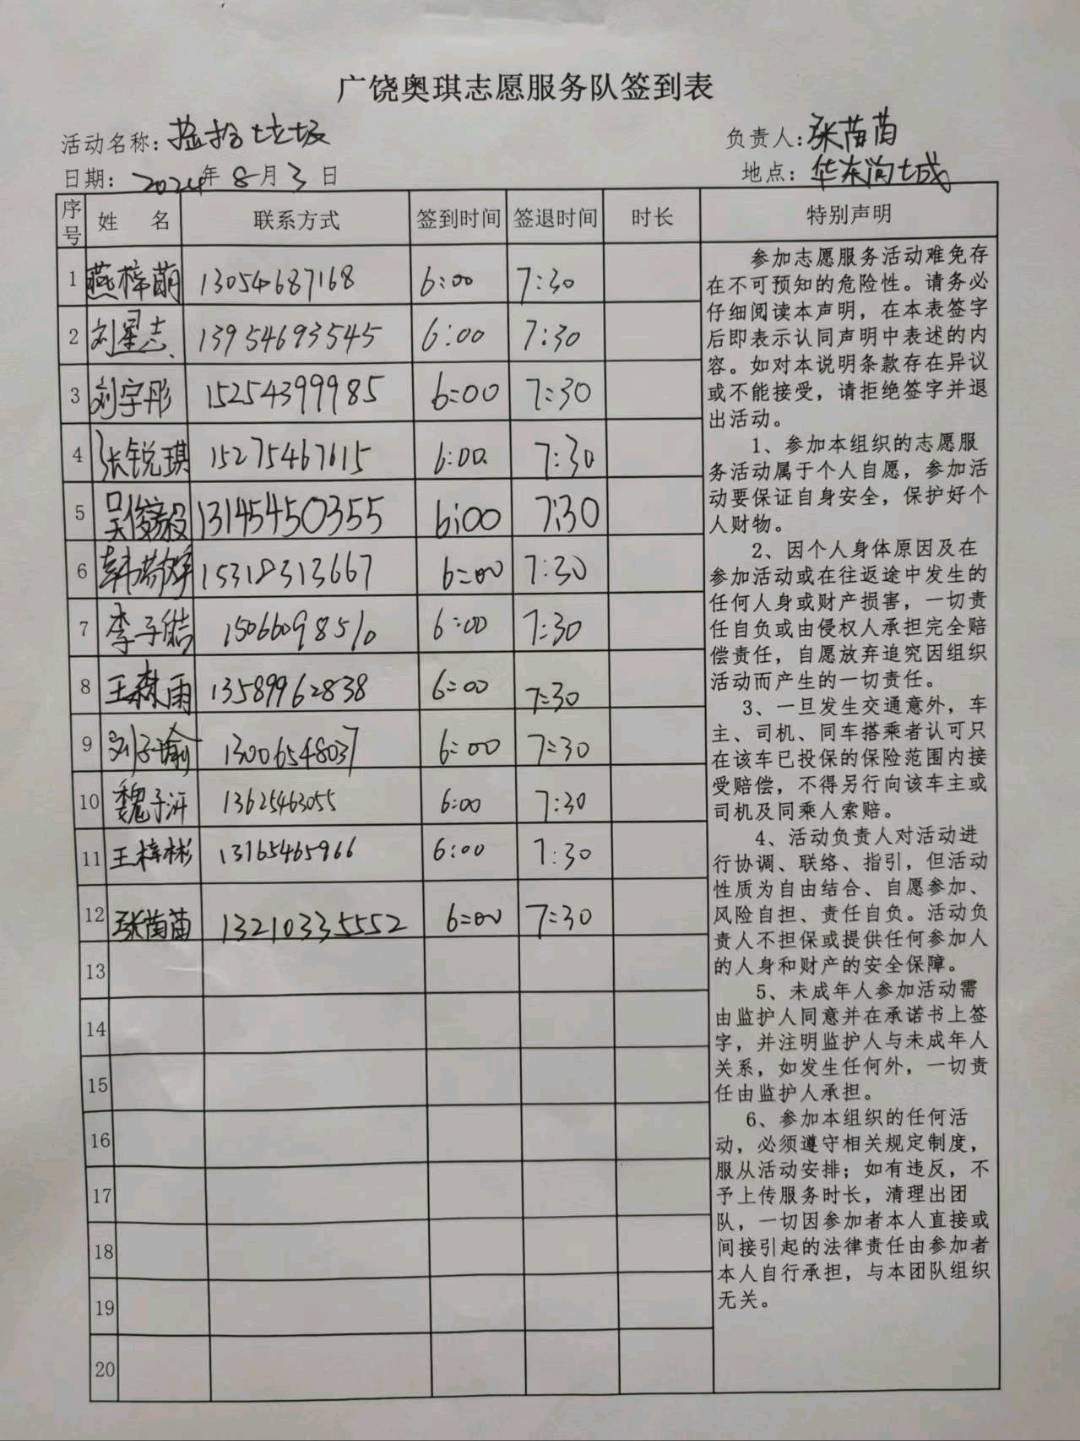 广饶奥琪志愿服务队签到表
活动名称：捡拾垃圾 负责人：张苗苗
日期：2024年8月3日 地点：华东沟城
序号 姓名 联系方式 签到时间 签退时间 时长 特别声明
1 燕梓萌 13054687168 6:00 7:30
2 刘星志 13954693545 6:00 7:30
3 刘宇彤 15254399985 6:00 7:30
4 张锐琪 15275467615 6:00 7:30
5 吴俊毅 13145450355 6:00 7:30
6 韩 15318313667 6:00 7:30
7 李子皓 15066098510 6:00 7:30
8 王森雨 13589962838 6:00 7:30
9 刘子瑜 13006548037 6:00 7:30
10 魏子沂 13625463055 6:00 7:30
11 王梓彬 13165465966 6:00 7:30
12 张苗苗 13210335552 6:00 7:30
13
14
15
16
17
18
19
20
参加志愿服务活动难免存
在不可预知的危险性。请务必
仔细阅读本声明，在本表签字
后即表示认同声明中表述的内
容。如对本说明条款存在异议
或不能接受，请拒绝签字并退
出活动。
1、参加本组织的志愿服
务活动属于个人自愿，参加活
动要保证自身安全，保护好个
人财物。
2、因个人身体原因及在
参加活动或在往返途中发生的
任何人身或财产损害，一切责
任自负或由侵权人承担完全赔
偿责任，自愿放弃追究因组织
活动而产生的一切责任。
3、一旦发生交通意外，车
主、司机、同车搭乘者认可只
在该车已投保的保险范围内接
受赔偿，不得另行向该车主或
司机及同乘人索赔。
4、活动负责人对活动进
行协调、联络、指引，但活动
性质为自由结合、自愿参加、
风险自担、责任自负。活动负
责人不担保或提供任何参加人
的人身和财产的安全保障。
5、未成年人参加活动需
由监护人同意并在承诺书上签
字，并注明监护人与未成年人
关系，如发生任何外，一切责
任由监护人承担。
6、参加本组织的任何活
动，必须遵守相关规定制度，
服从活动安排；如有违反，不
予上传服务时长，清理出团
队，一切因参加者本人直接或
间接引起的法律责任由参加者
本人自行承担，与本团队组织
无关。